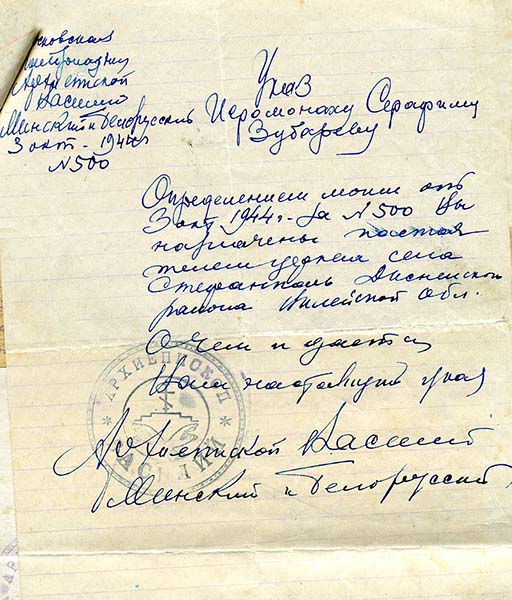 Московская
Патриархия
Архиепископ
Василий
Минский и Белорусский
3 окт. - 1944 г.
N 500
Указ
Иеромонаху Серафиму
Зубареву
Определением моим от
3 окт 1944 г. за N 500 Вы
назначены настоя
телем церкви села
Стефанполь Дисненского
района Вилейской Обл.
О чем и дается
Вам настоящий указ
Архиепископ Василий
Минский и Белорусский
АРХИЕПИСКОП
ВАСИЛИЙ